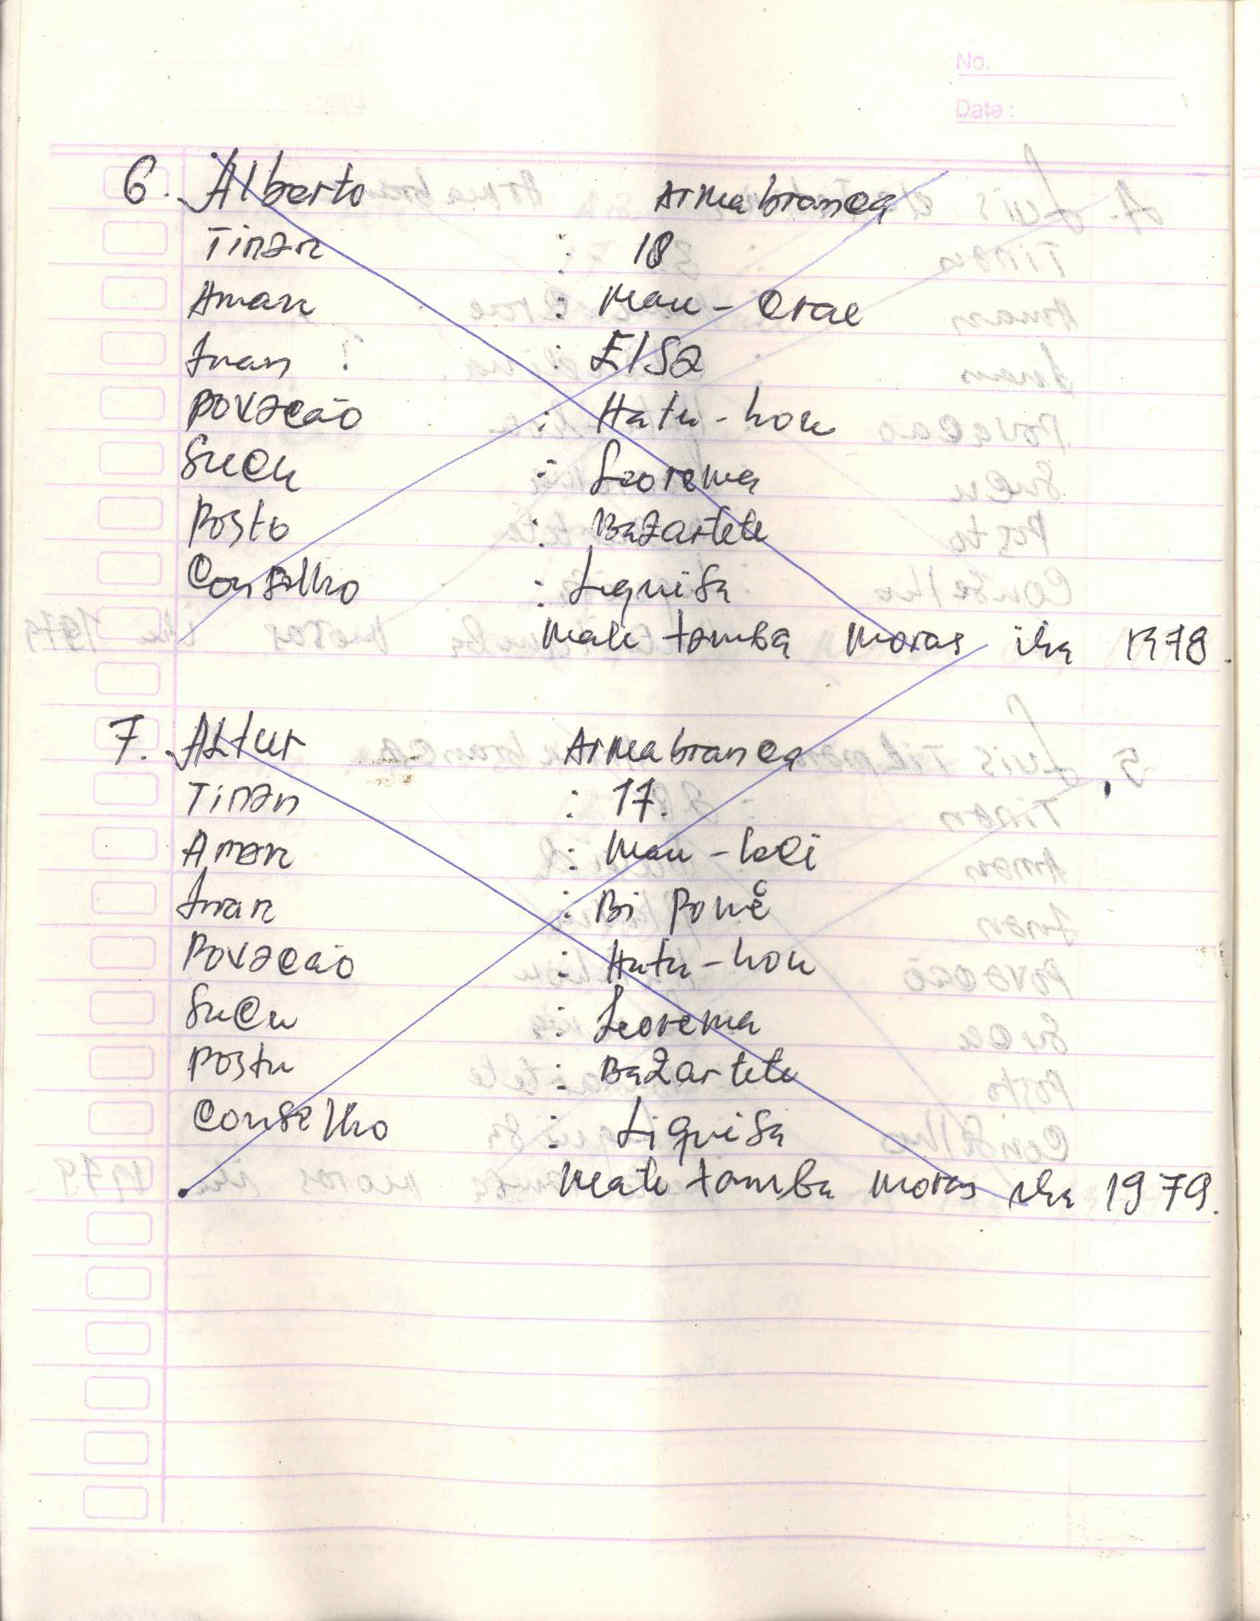 No.
Date:
6. Alberto Arma branca
Tinan : 18
Aman : Mau - Crae
Inan : ELSA
Povacão : Hatu - hou
Sucu : Leorema
Posto : Bazartete
Conselho : Liquisa
Mate tamba moras iha 1978.
7. Altur Arma branca
Tinan : 17.
Aman : Mau - loei
Inan : Bi Poně
Povacão : Hatu - hou
Sucu : Leorema
Postu : Bazartete
Conselho : Liquisa
Mate tamba moras iha 1979.